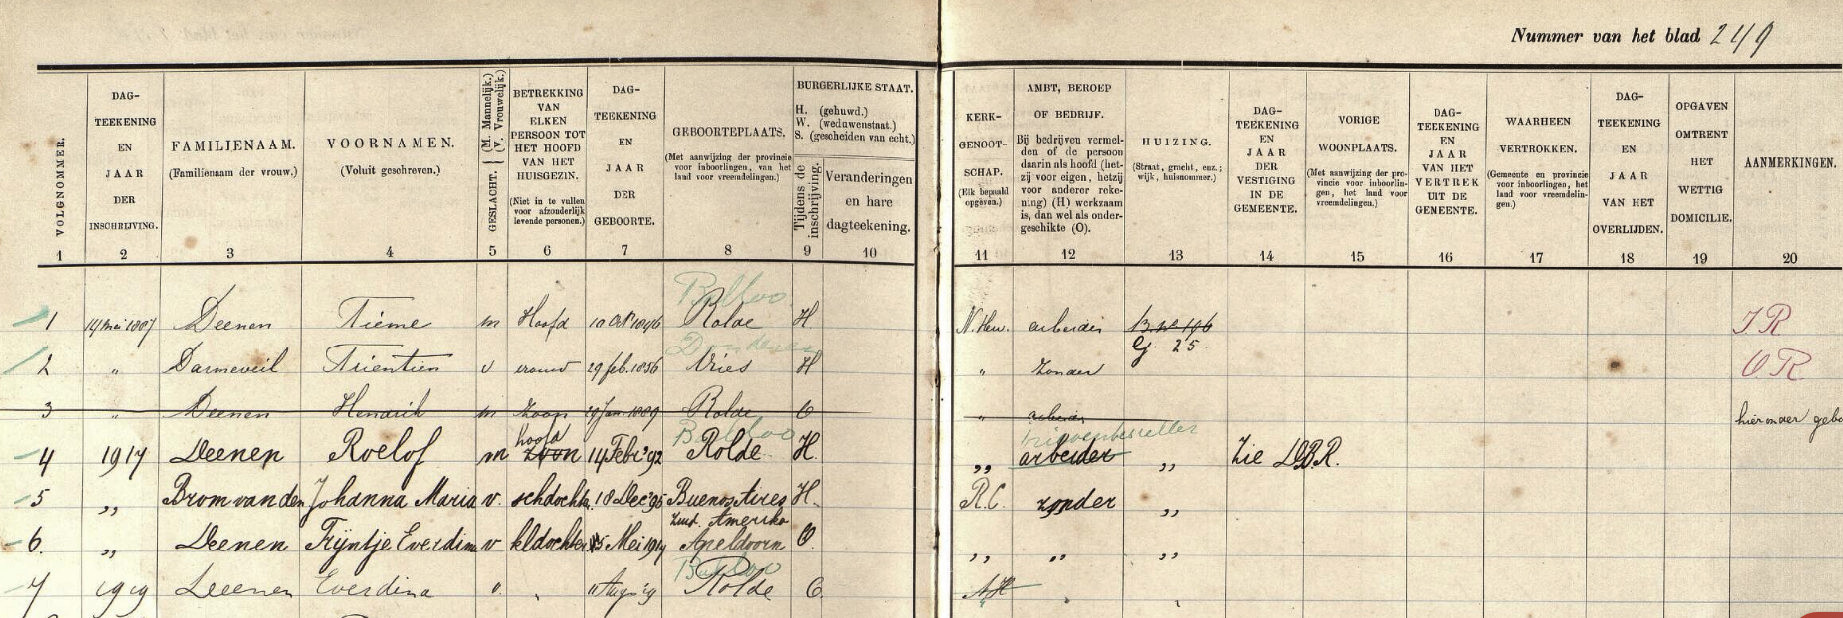 Nummer van het blad 249
VOLGNOMMER.
DAG-
TEEKENING
EN
JAAR
DER
INSCHRIJVING.
FAMILIENAAM.
(Familienaam der vrouw.)
VOORNAMEN.
(Voluit geschreven.)
GESLACHT. (M. Mannelijk.) (V. Vrouwelijk.)
BETREKKING
VAN
ELKEN
PERSOON TOT
HET HOOFD
VAN HET
HUISGEZIN.
(Niet in te vullen
voor afzonderlijk
levende personen.)
DAG-
TEEKENING
EN
JAAR
DER
GEBOORTE.
GEBOORTEPLAATS.
(Met aanwijzing der provincie
voor inboorlingen, van het
land voor vreemdelingen.)
BURGERLIJKE STAAT.
H. (gehuwd.)
W. (weduwenstaat.)
S. (gescheiden van echt.)
Tijdens de
inschrijving.
Veranderingen
en hare
dagteekening.
KERK-
GENOOT-
SCHAP.
(Elk bepaald
opgeven.)
AMBT, BEROEP
OF BEDRIJF.
Bij bedrijven vermel-
den of de persoon
daarin als hoofd (het-
zij voor eigen, hetzij
voor anderer reke-
ning) (H) werkzaam
is, dan wel als onder-
geschikte (O).
HUIZING.
(Straat, gracht, enz.;
wijk, huisnommer.)
DAG-
TEEKENING
EN
JAAR
DER
VESTIGING
IN DE
GEMEENTE.
VORIGE
WOONPLAATS.
(Met aanwijzing der pro-
vincie voor inboorlin-
gen, het land voor
vreemdelingen.)
DAG-
TEEKENING
EN
JAAR
VAN HET
VERTREK
UIT DE
GEMEENTE.
WAARHEEN
VERTROKKEN.
(Gemeente en provincie
voor inboorlingen, het
land voor vreemdelin-
gen.)
DAG-
TEEKENING
EN
JAAR
VAN HET
OVERLIJDEN.
OPGAVEN
OMTRENT
HET
WETTIG
DOMICILIE.
AANMERKINGEN.
1 2 3 4 5 6 7 8 9 10 11 12 13 14 15 16 17 18 19 20
Balloo
1 14 mei 1887 Deenen Tieme m Hoofd 10 Oct 1846 Rolde H N. Herv. arbeider B no 196 IR
G 25
Donderen
2 " Darneveil Trientien v vrouw 29 feb. 1856 Vries H " Zonder OR
3 " Deenen Hendrik m Zoon 29 Jan 1889 Rolde O " arbeider hieronder
Balloo brievenbesteller
hoofd
4 1917 Deenen Roelof m zoon 14 Febr '92 Rolde H. ,, arbeider ,, Zie D.B.R.
5 ,, Brom van den Johanna Maria v. schdochter 18 Dec '95 Buenos Aires H. R.C. zonder ,,
Zuid. Amerika
6. ,, Deenen Trijntje Everdina v kldochter 15 Mei 1917 Apeldoorn O. ,, ,, ,,
Balloo
7 1919 Deenen Everdina v. " 11 Aug '19 Rolde O. NH "